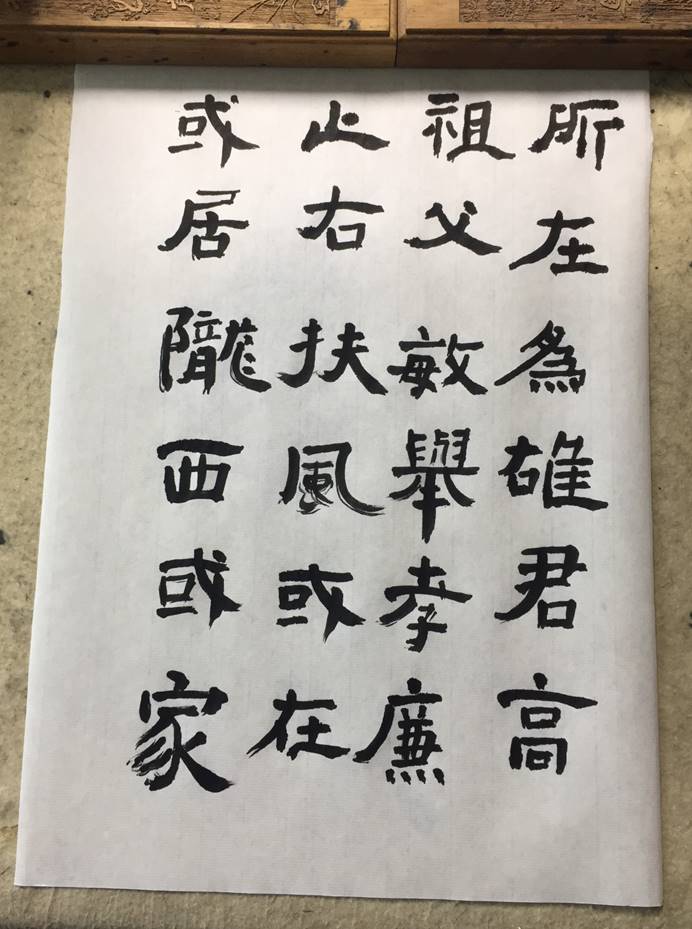 所在為雄君高
祖父敏舉孝廉
止右扶風或在
或居隴西或家